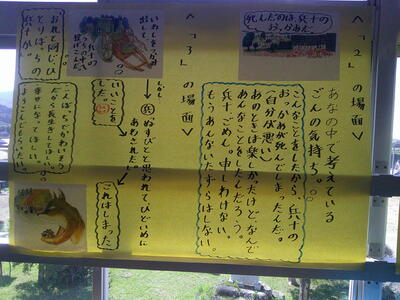 ＜「2」の場面＞
死んだのは、兵十の
おっかあだ。
あなの中で考えている
ごんの気持ち。
こんなことをしたから、兵十の
おっかあが死んでしまったんだ。
(自分が悪い)
あのときは楽しかったけど、なんで
あんなことをしたんだろう。
兵十、ごめん。申しわけない。
もうあんないたずらはしない。
＜「3」の場面＞
いわしをつかみ
出して、
兵十の
いいことを
した。
しかし
兵 ぬすびとと思われてひどいめに
あわされた。
これはしまった
おれと同じ、ひ
とりぼっちの
兵十か。